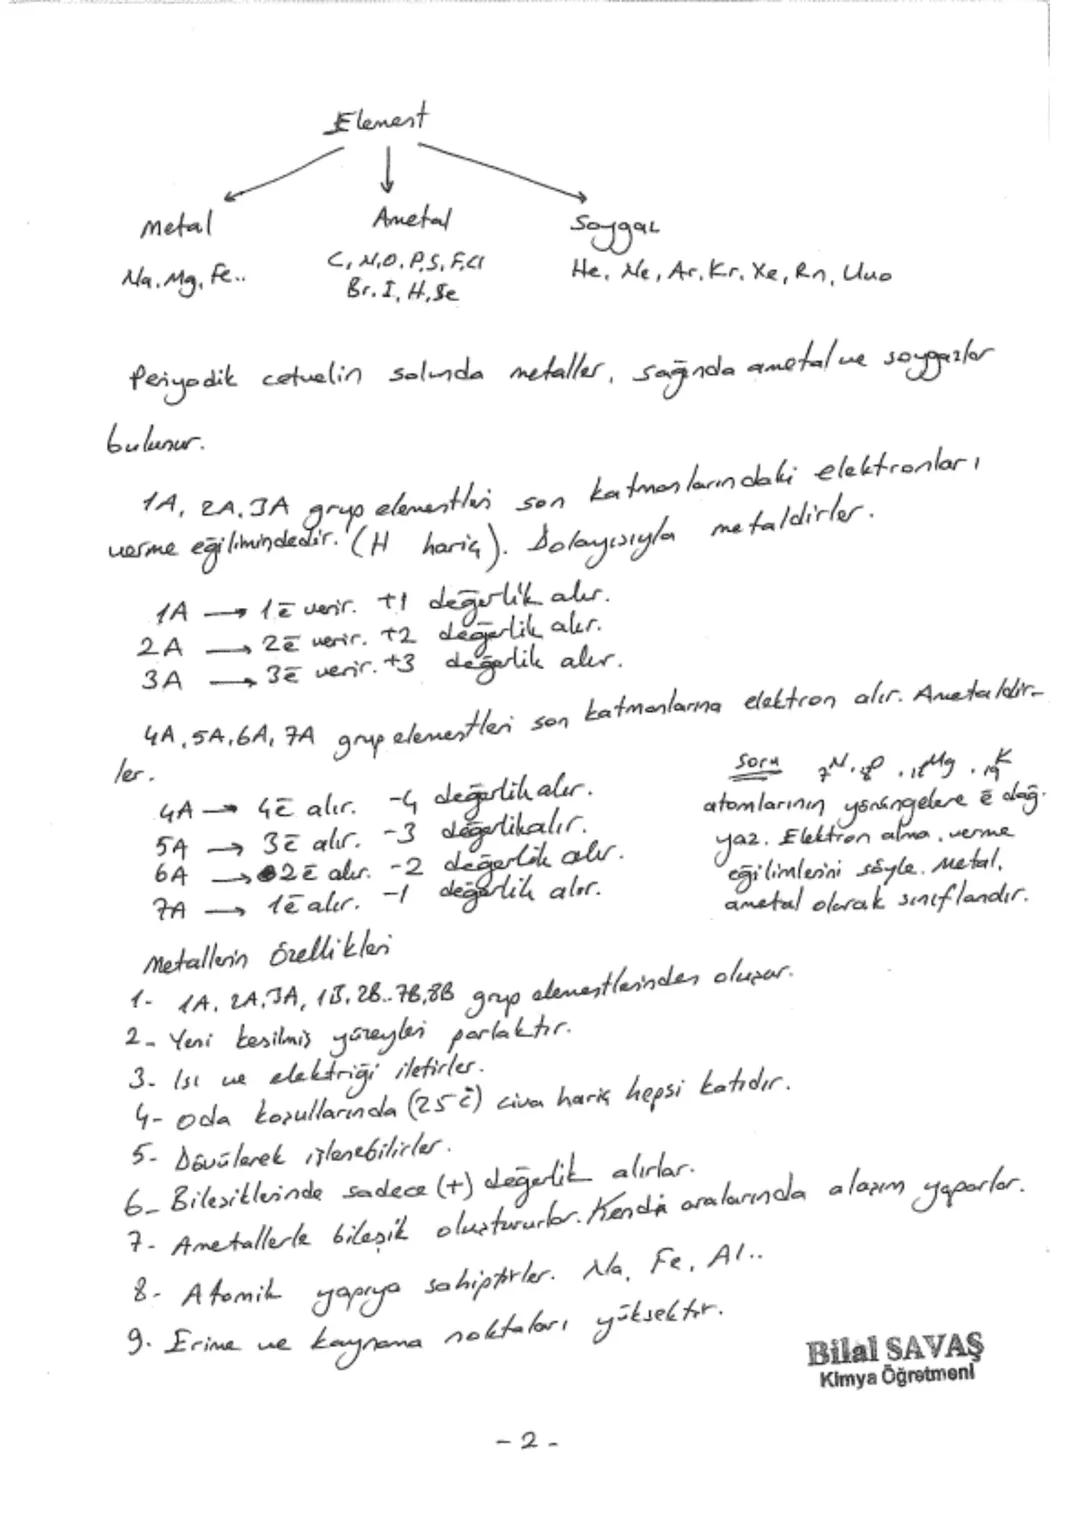 Element
Metal Ametal Soygaz
Na, Mg, Fe.. C, N, O, P, S, F, Cl He, Ne, Ar, Kr, Xe, Rn, Uuo
Br, I, H, Se
Periyodik cetvelin solunda metaller, sağında ametal ve soygazlar
bulunur.
1A, 2A, 3A grup elementleri son katmanlarındaki elektronları
verme eğilimindedir. (H hariç). Dolayısıyla metaldirler.
1A → 1ē verir. +1 değerlik alır.
2A → 2ē verir. +2 değerlik alır.
3A → 3ē verir. +3 değerlik alır.
4A, 5A, 6A, 7A grup elementleri son katmanlarına elektron alır. Ametaldir-
ler.
4A → 4ē alır. -4 değerlik alır.
5A → 3ē alır. -3 değerlik alır.
6A → 2ē alır. -2 değerlik alır.
7A → 1ē alır. -1 değerlik alır.
Soru ₇N, ₈O, ₁₂Mg, ₁₉K
atomlarının yörüngelere ē dağ.
yaz. Elektron alma, verme
eğilimlerini söyle. Metal,
ametal olarak sınıflandır.
Metallerin Özellikleri
1- 1A, 2A, 3A, 1B, 2B..7B, 8B grup elementlerinden oluşur.
2- Yeni kesilmiş yüzeyleri parlaktır.
3- Isı ve elektriği iletirler.
4- Oda koşullarında (25 °C) civa hariç hepsi katıdır.
5- Dövülerek işlenebilirler.
6- Bileşiklerinde sadece (+) değerlik alırlar.
7- Ametallerle bileşik oluştururlar. Kendi aralarında alaşım yaparlar.
8- Atomik yapıya sahiptirler. Na, Fe, Al..
9. Erime ve kaynama noktaları yüksektir.
Bilal SAVAŞ
Kimya Öğretmeni
- 2 -